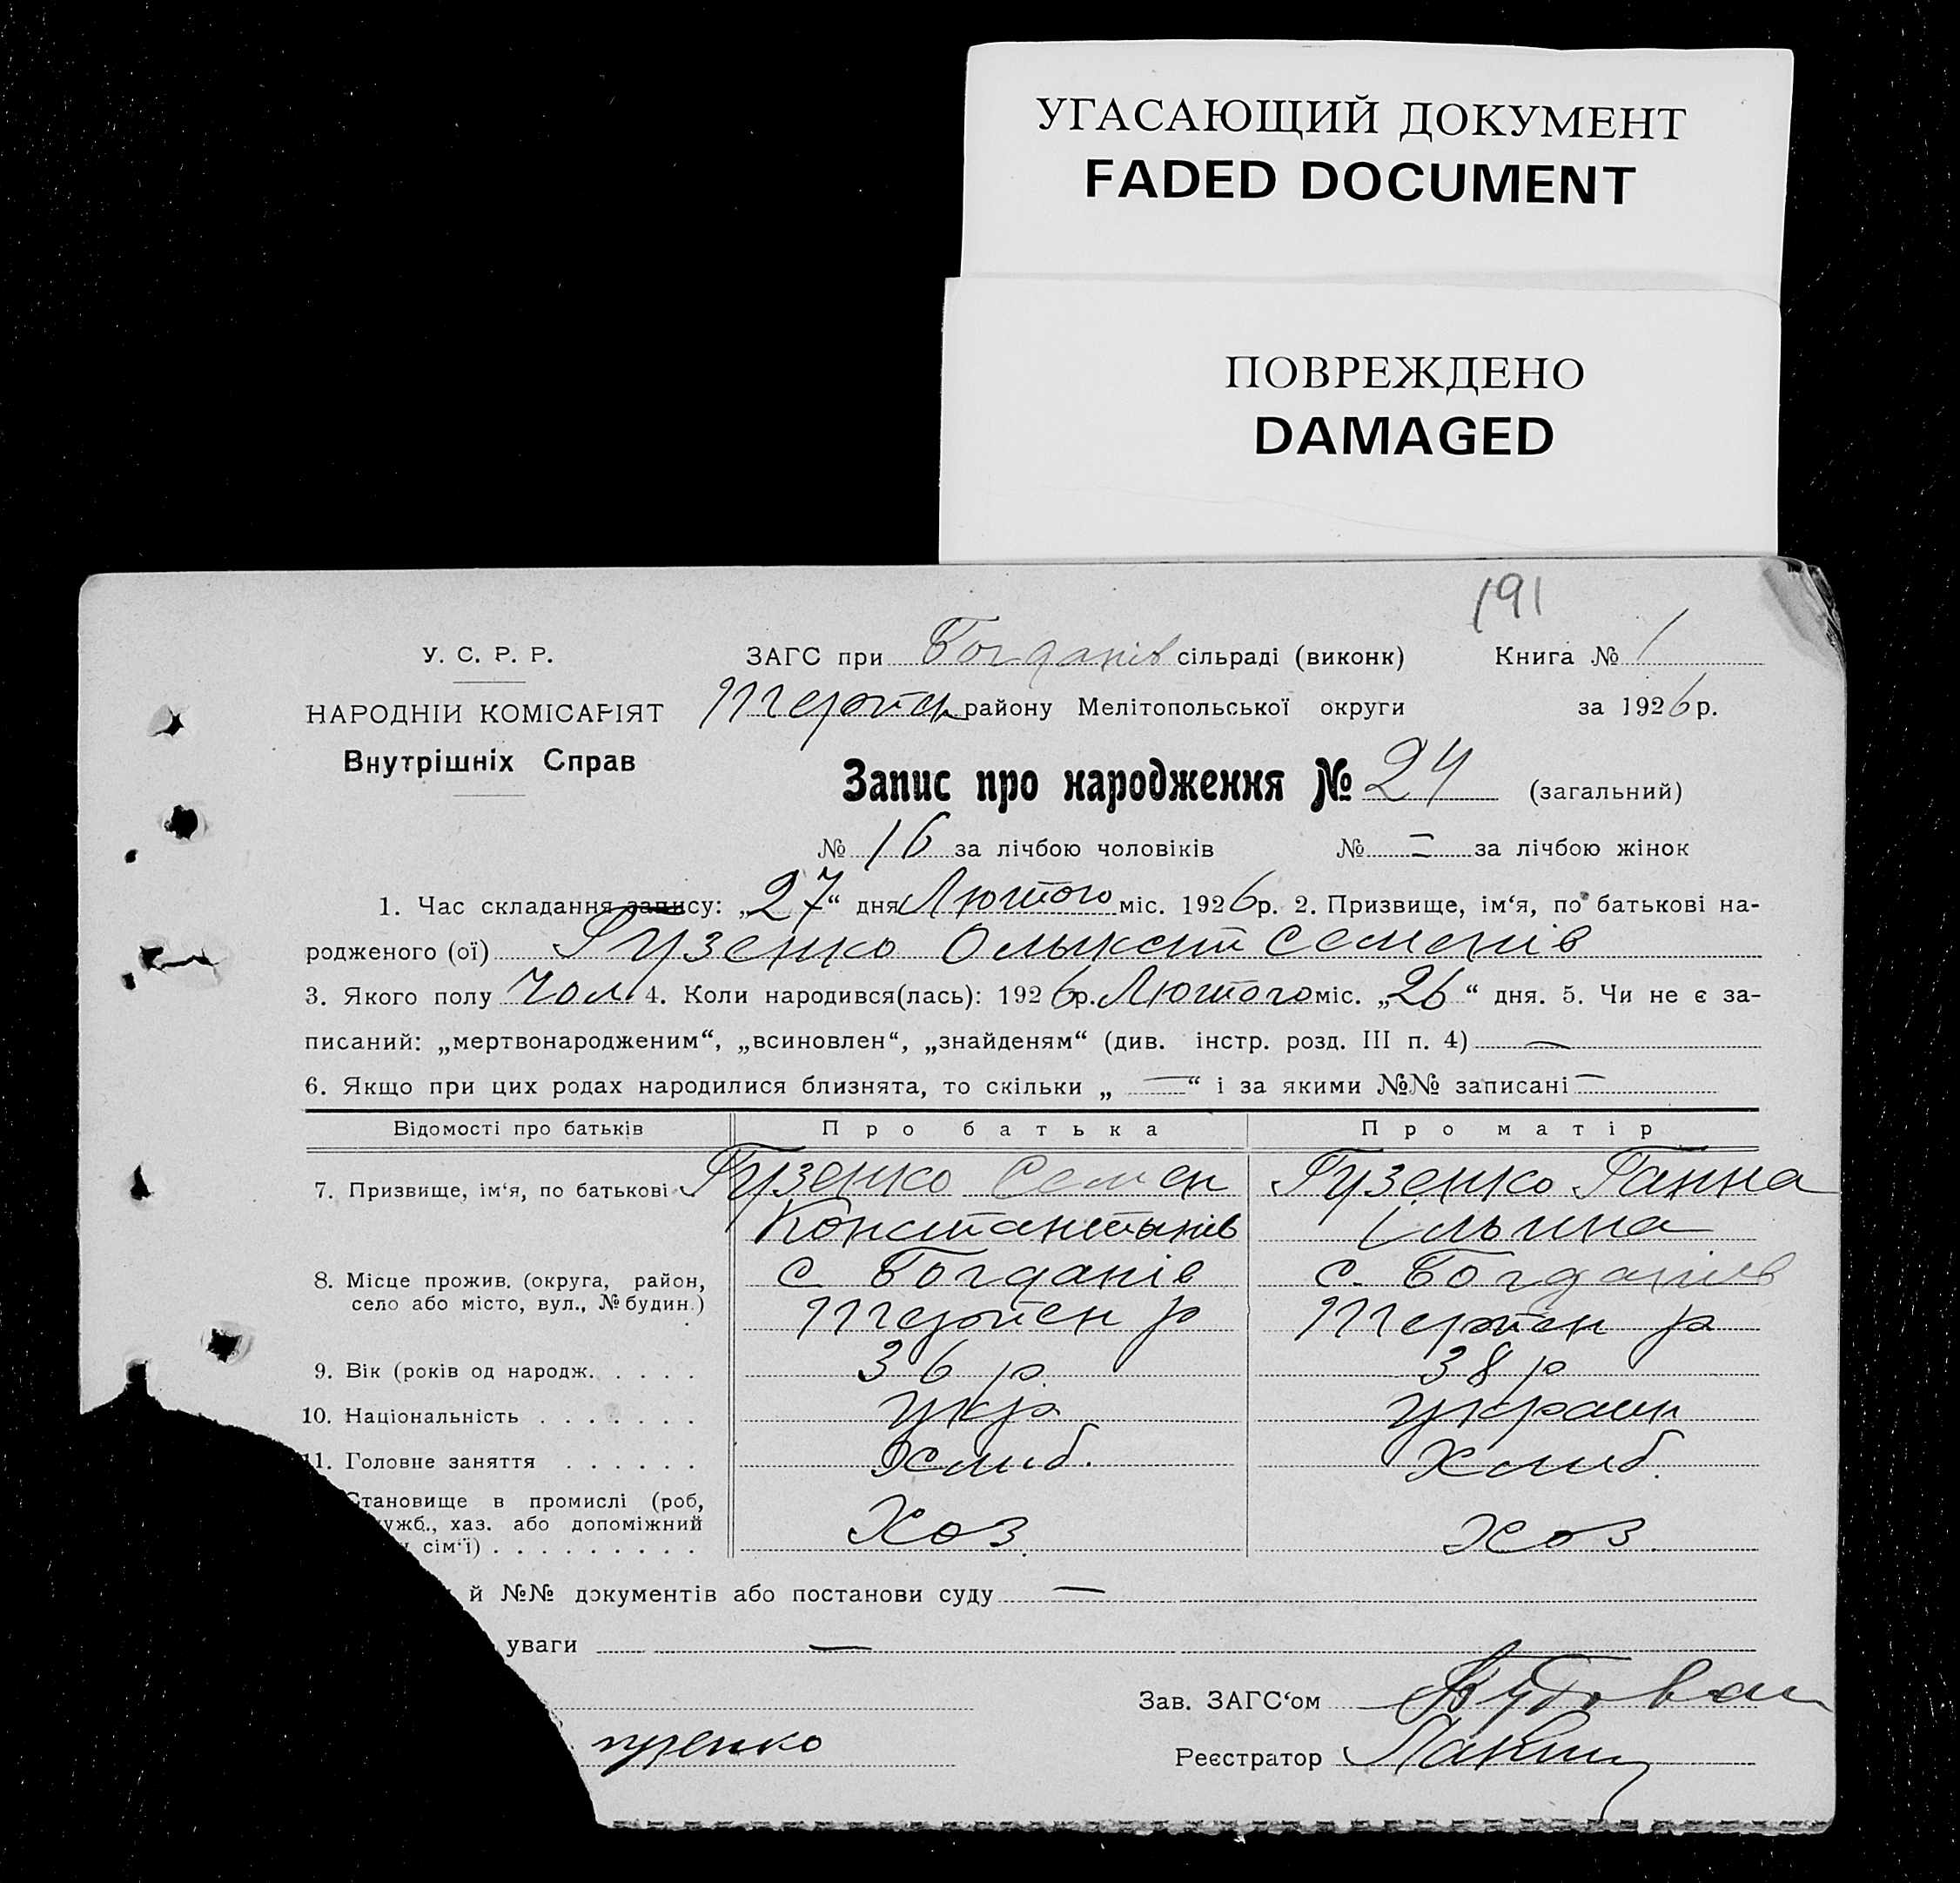 УГАСАЮЩИЙ ДОКУМЕНТ
FADED DOCUMENT
ПОВРЕЖДЕНО
DAMAGED
191
У. С. Р. Р.
ЗАГС при Богданів сільраді (виконк) Книга № 1
НАРОДНІИ КОМІСАРІЯТ
Терпен району Мелітопольської округи за 1926 р.
Внутрішніх Справ
Запис про народження № 24 (загальний)
№ 16 за лічбою чоловіків № — за лічбою жінок
1. Час складання запису: „27“ дня Лютого міс. 1926 р. 2. Призвище, ім‘я, по батькові на-
родженого (ої) Гузенко Олыксій Семенів
3. Якого полу Чол. 4. Коли народився(лась): 1926 р. Лютого міс. „26“ дня. 5. Чи не є за-
писаний: „мертвонародженим“, „всиновлен“, „знайденям“ (див. інстр. розд. III п. 4) —
6. Якщо при цих родах народилися близнята, то скільки „ — “ і за якими №№ записані —
Відомості про батьків Про батька Про матір
7. Призвище, ім‘я, по батькові Гузенко Семен Гузенко Ганна
Константынів Ільина
8. Місце прожив. (округа, район, с Богданів с. Богданів
село або місто, вул., № будин.) Терпен р Терпен р
9. Вік (років од народж. . . . . 36 р. 38 р
10. Національність . . . . . . . Укр. Україн
11. Головне заняття . . . . . . Хлиб. Хлиб.
Становище в промислі (роб,
ужб., хаз. або допоміжний Хоз. Хоз.
сім‘ї) . . . . . . . . .
й №№ документів або постанови суду —
уваги —
Зав. ЗАГС‘ом
Реєстратор